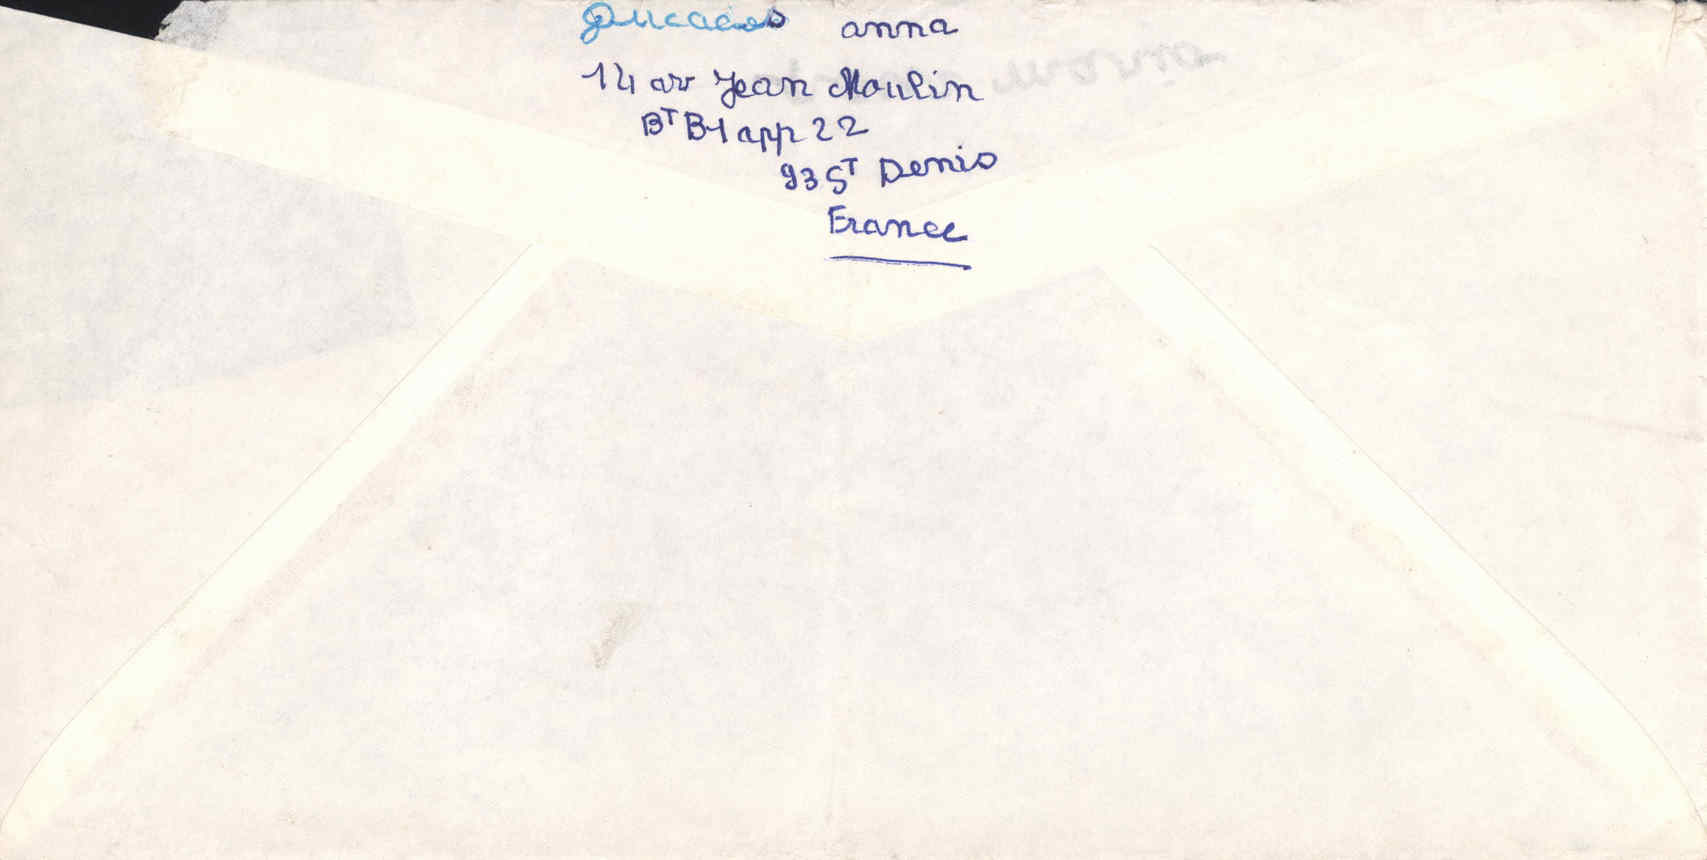 anna
14 av Jean Moulin
Bᵀ B1 app 22
93 Sᵀ Denis
France